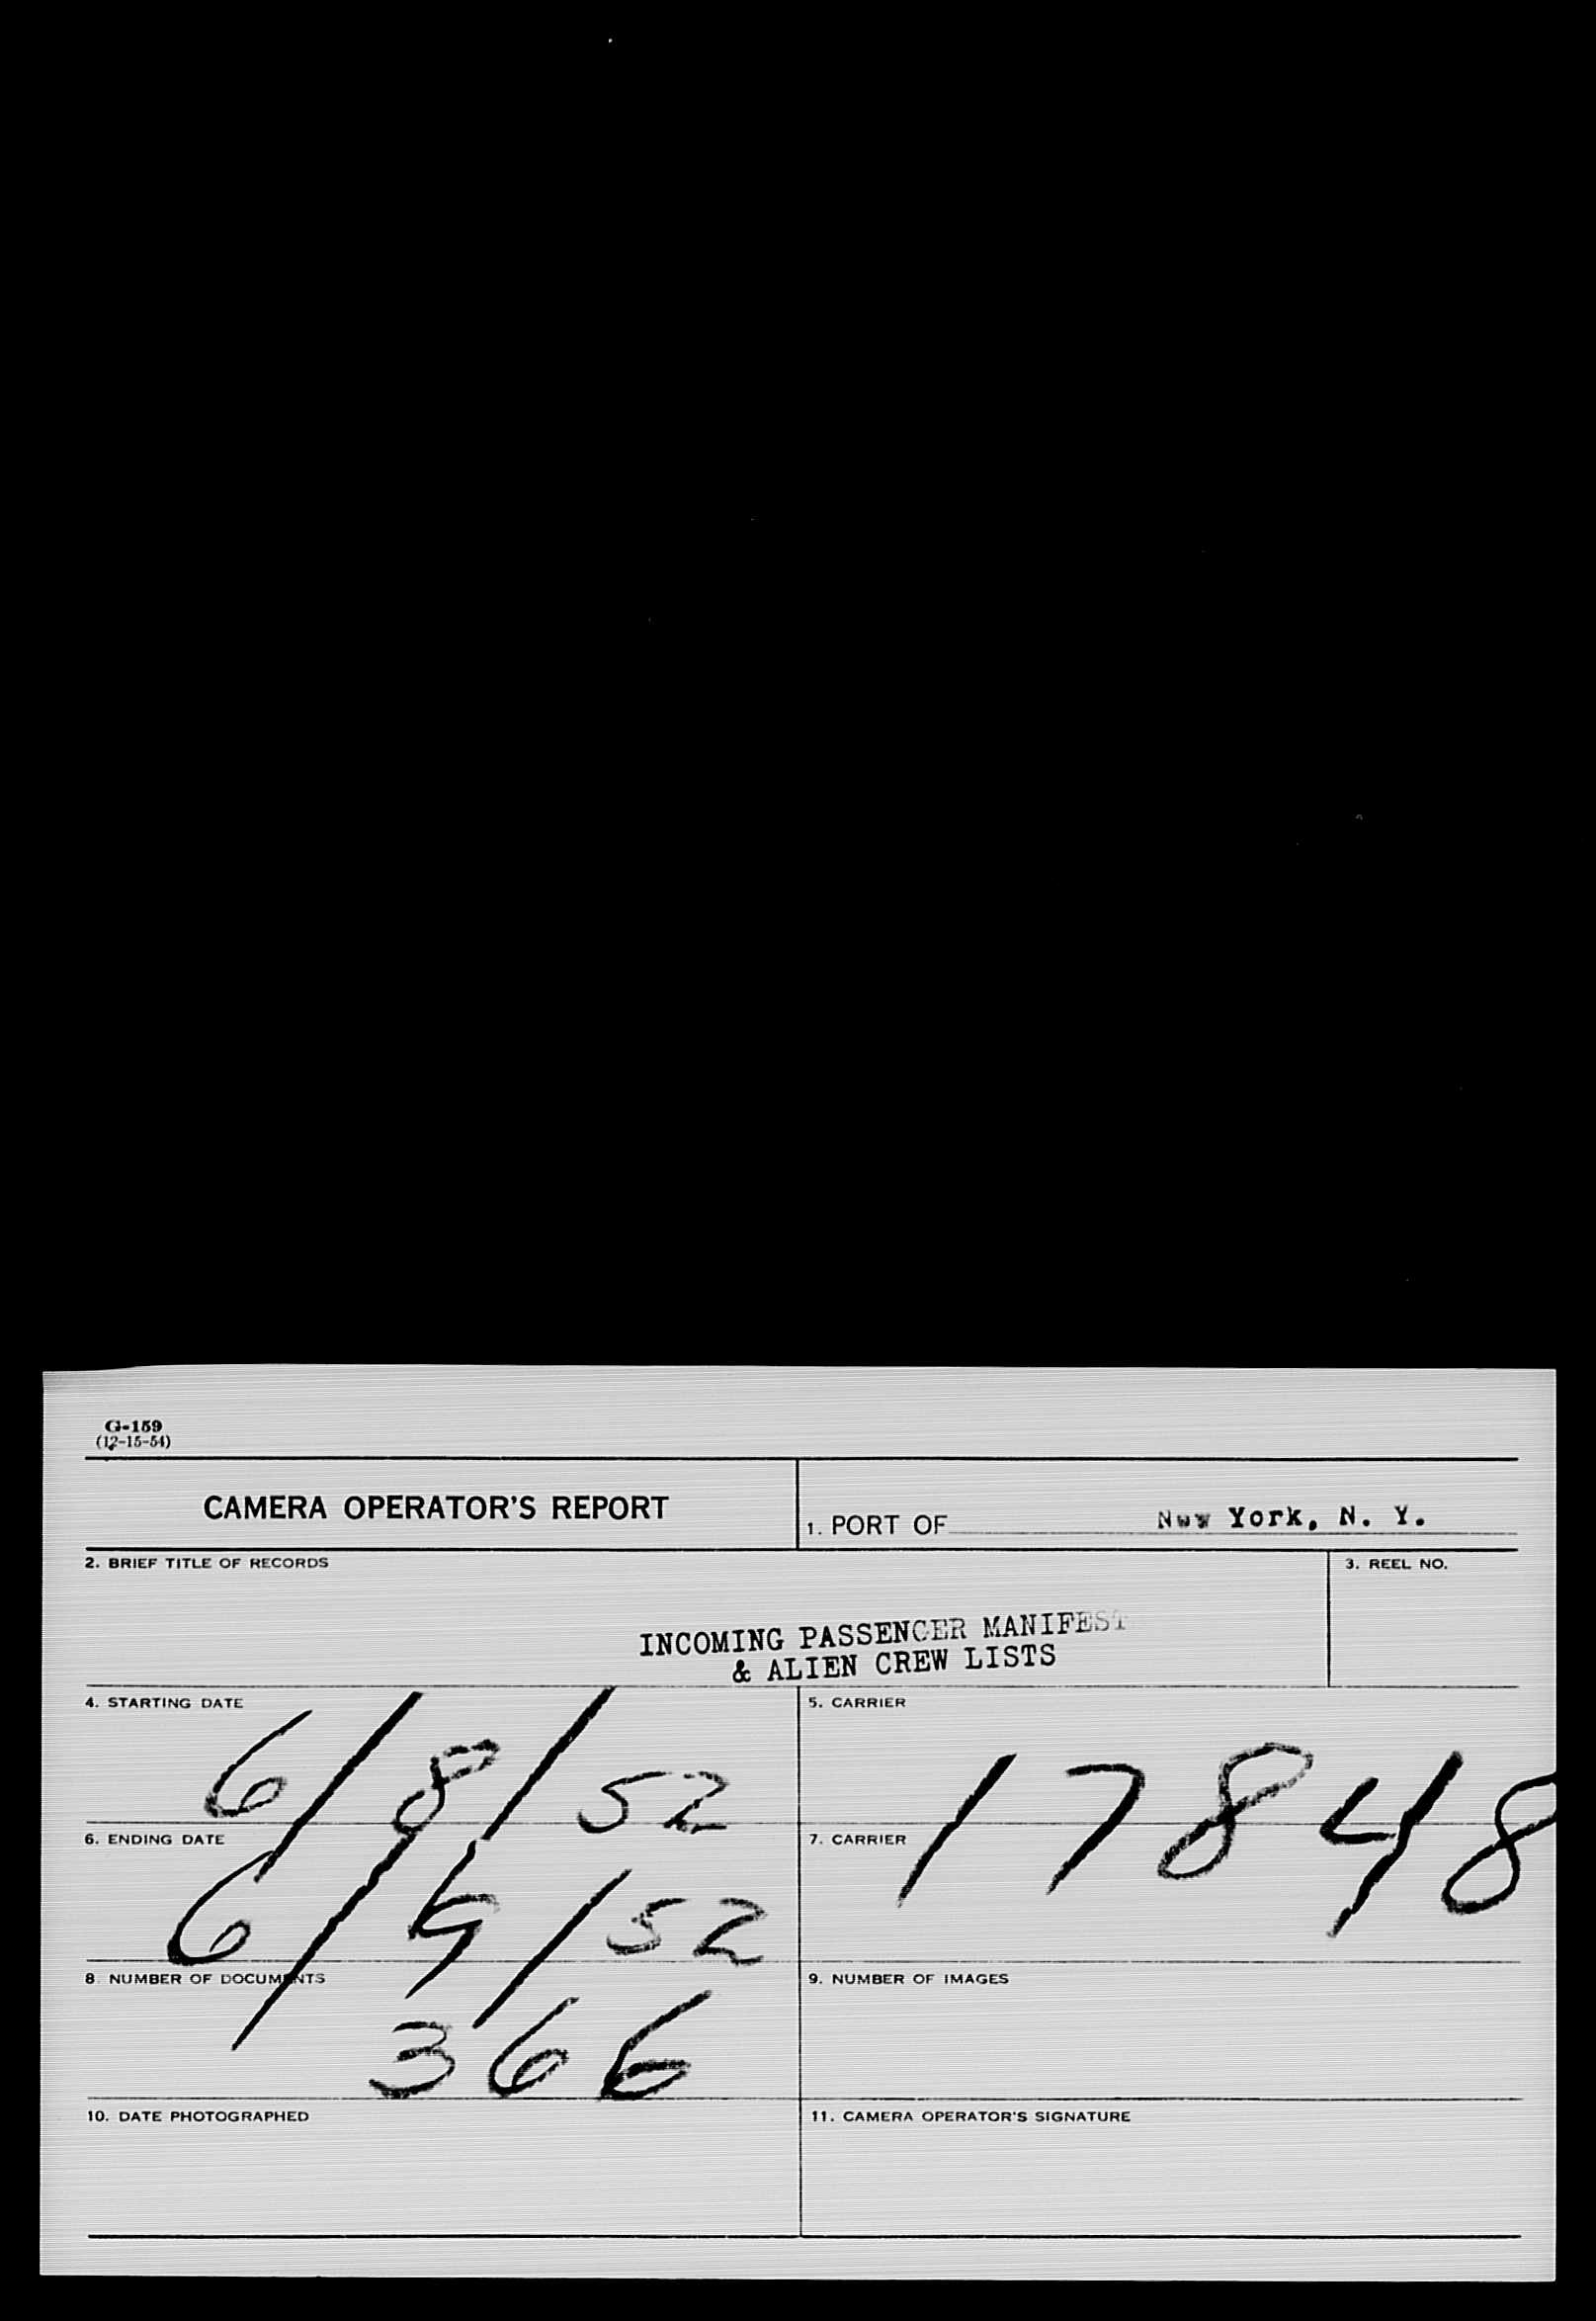 G-159
(12-15-54)
CAMERA OPERATOR'S REPORT
1. PORT OF New York, N. Y.
2. BRIEF TITLE OF RECORDS
3. REEL NO.
INCOMING PASSENGER MANIFEST
& ALIEN CREW LISTS
4. STARTING DATE
6/8/52
5. CARRIER
17848
6. ENDING DATE
6/ /52
7. CARRIER
8. NUMBER OF DOCUMENTS
366
9. NUMBER OF IMAGES
10. DATE PHOTOGRAPHED
11. CAMERA OPERATOR'S SIGNATURE